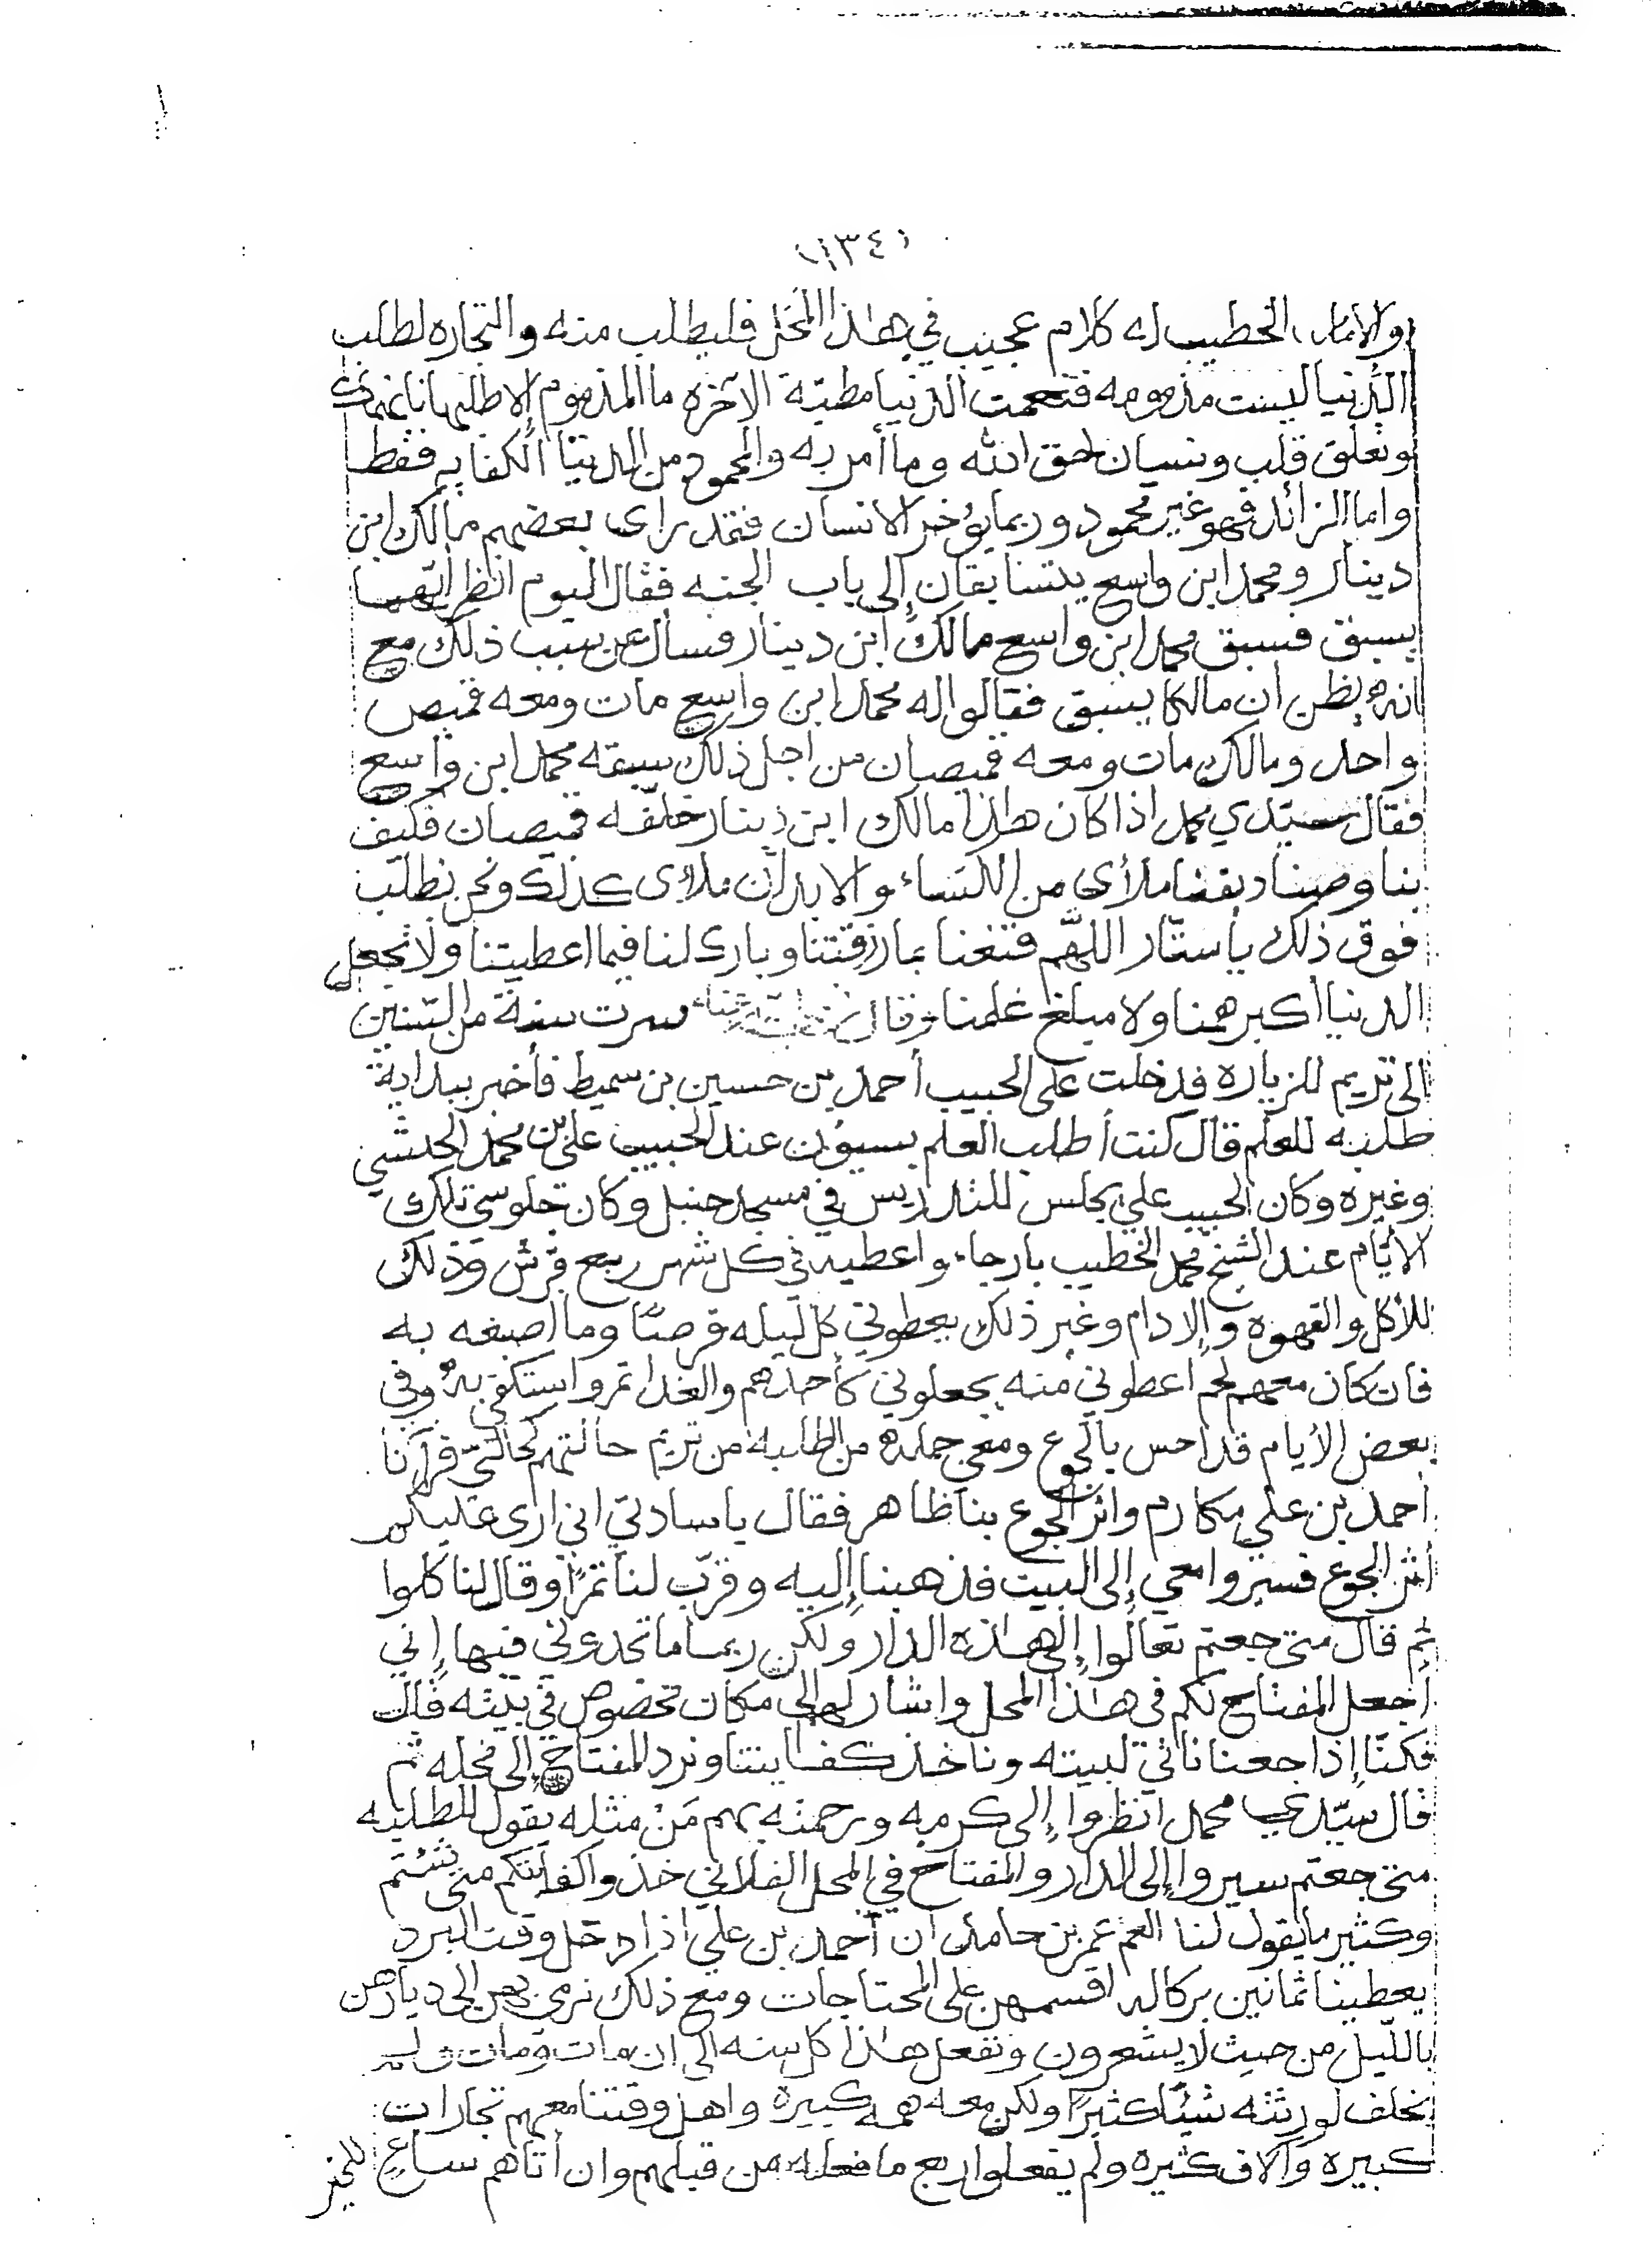 (١٣٤)
والامام الخطيب له كلام عجيب في هذا المحل فليطلب منه والتجاره لطلب
الدُنيا ليست مذمومه فنعمت الدنيا مطيّة الآخره ما المذموم إلا طلبها بانهماك
وتعلق قلب ونسيان لحق الله وما أمر به والمحمود من الدنيا الكفايه فقط
واما الزائد فهو غير محمود وربما يؤخر الانسان فقد رأى بعضهم مالك ابن
دينار ومحمد ابن واسع يتسابقان إلى باب الجنه فقال اليوم انظر ايهما
يسبق فسبق محمد ابن واسع مالك ابن دينار فسأل عن سبب ذلك مع
انه يظن ان مالكا يسبق فقالوا له محمد ابن واسع مات ومعه قميص
واحد ومالك مات ومعه قميصان من اجل ذلك سبقه محمد ابن واسع
فقال سيّدي محمد اذا كان هذا مالك ابن دينار خلّفه قميصان فكيف
بنا وصنادیقنا ملأى من الكساء والابدان ملأى كذلك ونحن نطلب
فوق ذلك يا ستّار اللهّم قنّعنا بما رزقتنا وبارك لنا فيما اعطيتنا ولا تجعل
الدنيا أكبر همنا ولا مبلغ علمنا وقال سرت سنة من السّنين
الى تريم للزياره فدخلت على الحبيب أحمد بن حسين بن سميط فأخبر ببداية
طلبه للعلم قال كنت أطلب العلم بسيؤن عند الحبيب علي بن محمد الحبشي
وغيره وكان الحبيب علي يجلس للتدريس في مسجد حنبل وكان جلوسي تلك
الأيّام عند الشيخ محمد الخطيب بارجاء واعطيه في كل شهر ربع قرش وذلك
للأكل والقهوه والإدام وغير ذلك يعطوني كل ليله قرصًا وما اصبغه به
فان كان معهم لحم اعطوني منه يجعلوني كأحدهم والغدا تمر واستكفي به وفي
بعض الأيام قد احس بالجوع ومعي جمله من الطلبه من تريم حالتهم كحالتي فرآنا
أحمد بن علي مكارم واثر الجوع بنا ظاهر فقال يا سادتي اني ارى عليكم
أثر الجوع فسيروا معي إلى البيت فذهبنا إليه وقرّب لنا تمرًا وقال لنا كلوا
ثم قال متى جعتم تعالوا إلى هذه الدار ولكن ربما ما تجدوني فيها إني
أجعل المفتاح لكم في هذا المحل واشار لهم إلى مكان مخصوص في بيته قال
فكنّا إذا جعنا نأتي لبيته وناخذ كفايتنا ونرد المفتاح إلى محله ثم
قال سيّدي محمد انظروا إلى كرمه ورحمته بهم مَنْ مثله يقول للطلبه
متى جعتم سيروا إلى الدار والمفتاح في المحل الفلاني خذوا كفايتكم متى شئتم
وكثير ما يقول لنا العم عمر بن حامد ان أحمد بن علي اذا دخل وقت البرد
يعطينا ثمانين بركاله اقسمهن على المحتاجات ومع ذلك نرمي بهن الى ديارهن
باللّيل من حيث لا يشعرون ونفعل هذا كل سنه الى ان مات ومات ولم
يخلف لورثته شيئًا كثيرًا ولكن معه همه كبيرة واهل وقتنا معهم تجارات
كبيره وآلاف كثيره ولم يفعلوا ربع ما فعله من قبلهم وان أتاهم ساعٍ للخير